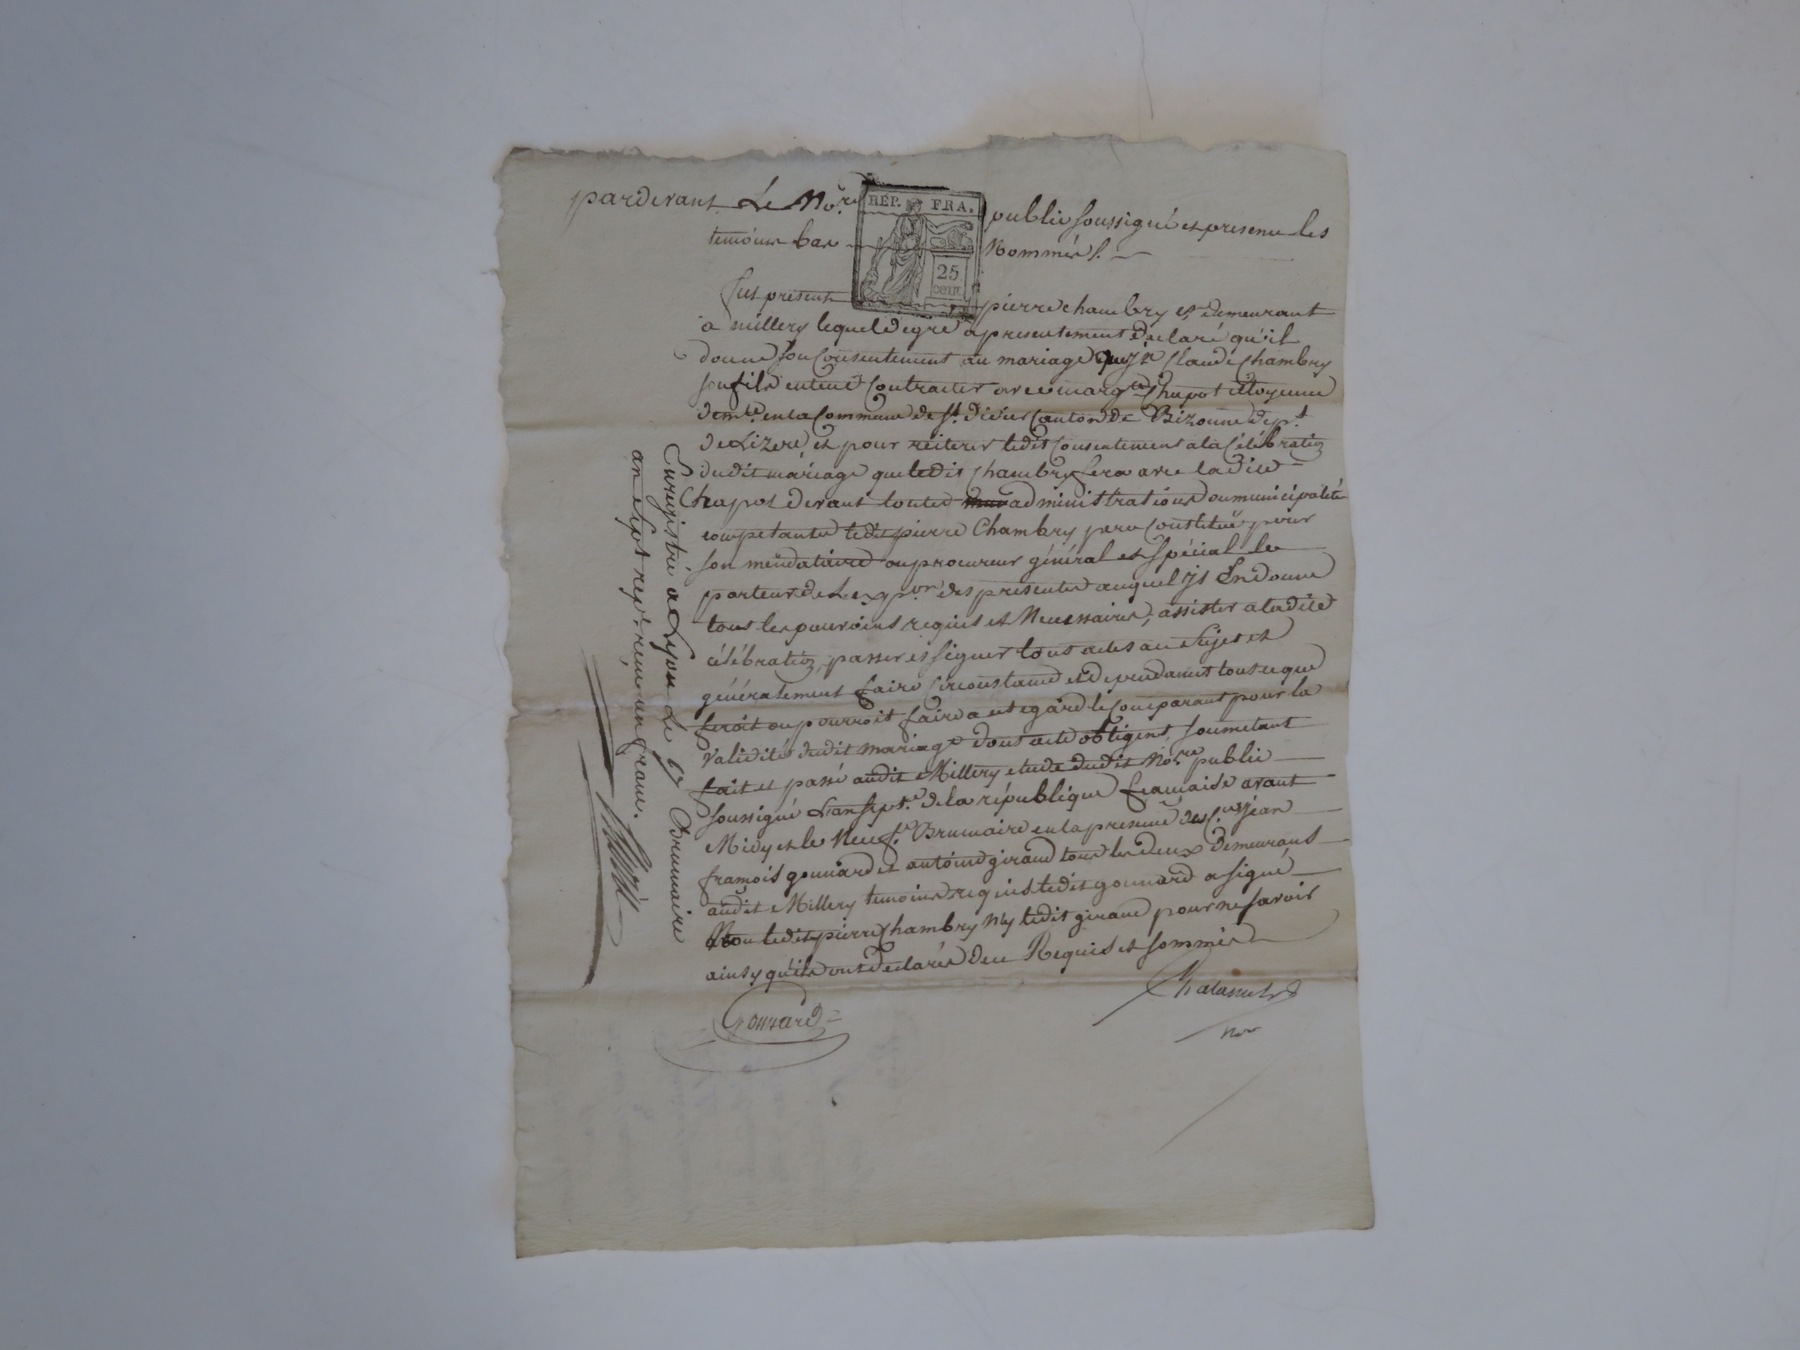 pardevant Le No.re public soussigné et presence les
temoins bas Nommés.
REP. FRA.
25
CENT.
fut present pierre chambry et demeurant
a millery lequel de gré a presentement declaré qu'il
donne son consentement au mariage que Claude Chambry
son fils entend contracter avec marg.te Chapot citoyenne
dem.te en la Commune de St. Didier Canton de Bizonne dep.t
de Lizere, et pour reiterer ledit consentement a la Célébration
dudit mariage que ledit Chambry fera avec ladite
Chapot devant toutes administrations ou municipalités
competantes ledit pierre Chambry pere constitue pour
son mendataire ou procureur général et spécial le
porteur de L'exp.on des presentes auquel il En donne
tous les pouvoirs requis et Necessaires, assister a ladite
célébration, passer et signer tous actes au sujet et
généralement faire circonstances et dependances tous ce que
feroit ou pourroit faire a cet egard le comparant pour la
validité dudit mariage dont acte obligent, soumetant
fait et passé audit Millery etude dudit No.re public
soussigné L'an sept.e de la république francaise avant
Midy et le Neuf Brumaire en la presence des C.ens jean
françois gonnard et antoine giraud tous les deux demeurans
audit Millery temoins requis ledit gonnard a signé
Non ledit pierre Chambry N'y ledit giraud pour ne savoir
ainsy qu'ils ont declarés de ce Requis et sommés
Gonnard
No.re
Enregistré a Lyon Le 17 Brumaire
an sept rep.e reçu un franc.